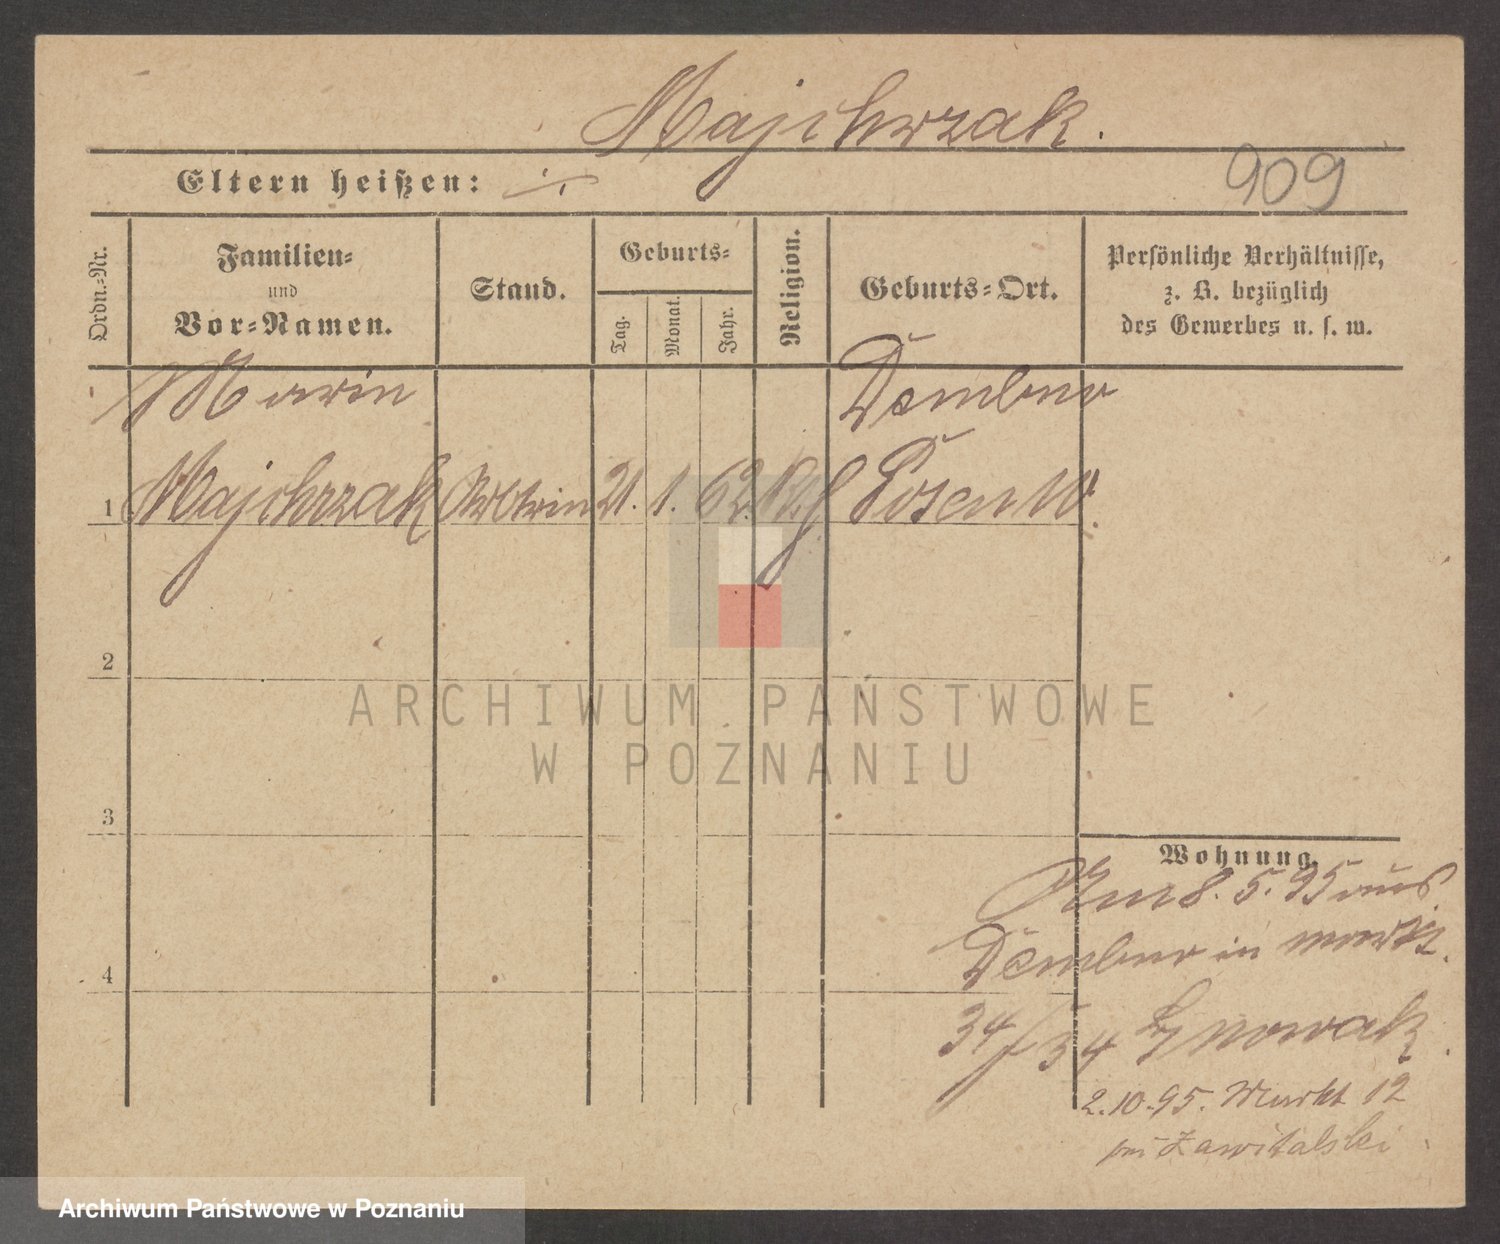 Majchrzak.
Eltern heißen: ÷
909
Ordn.-Nr.
Familien-
und
Vor-Namen.
Stand.
Geburts-
Tag.
Monat.
Jahr.
Religion.
Geburts-Ort.
Persönliche Verhältnisse,
z. B. bezüglich
des Gewerbes u. s. w.
Marie Dembno
1 Majchrzak 21. 1. 62. Posen W.
2
3
4
Wohnung.
Am 8. 5. 95 aus
Dembno in Markt
34/34 Nowak
2.10.95. Markt 12
bei Zawitalski
ARCHIWUM PAŃSTWOWE
W POZNANIU
Archiwum Państwowe w Poznaniu